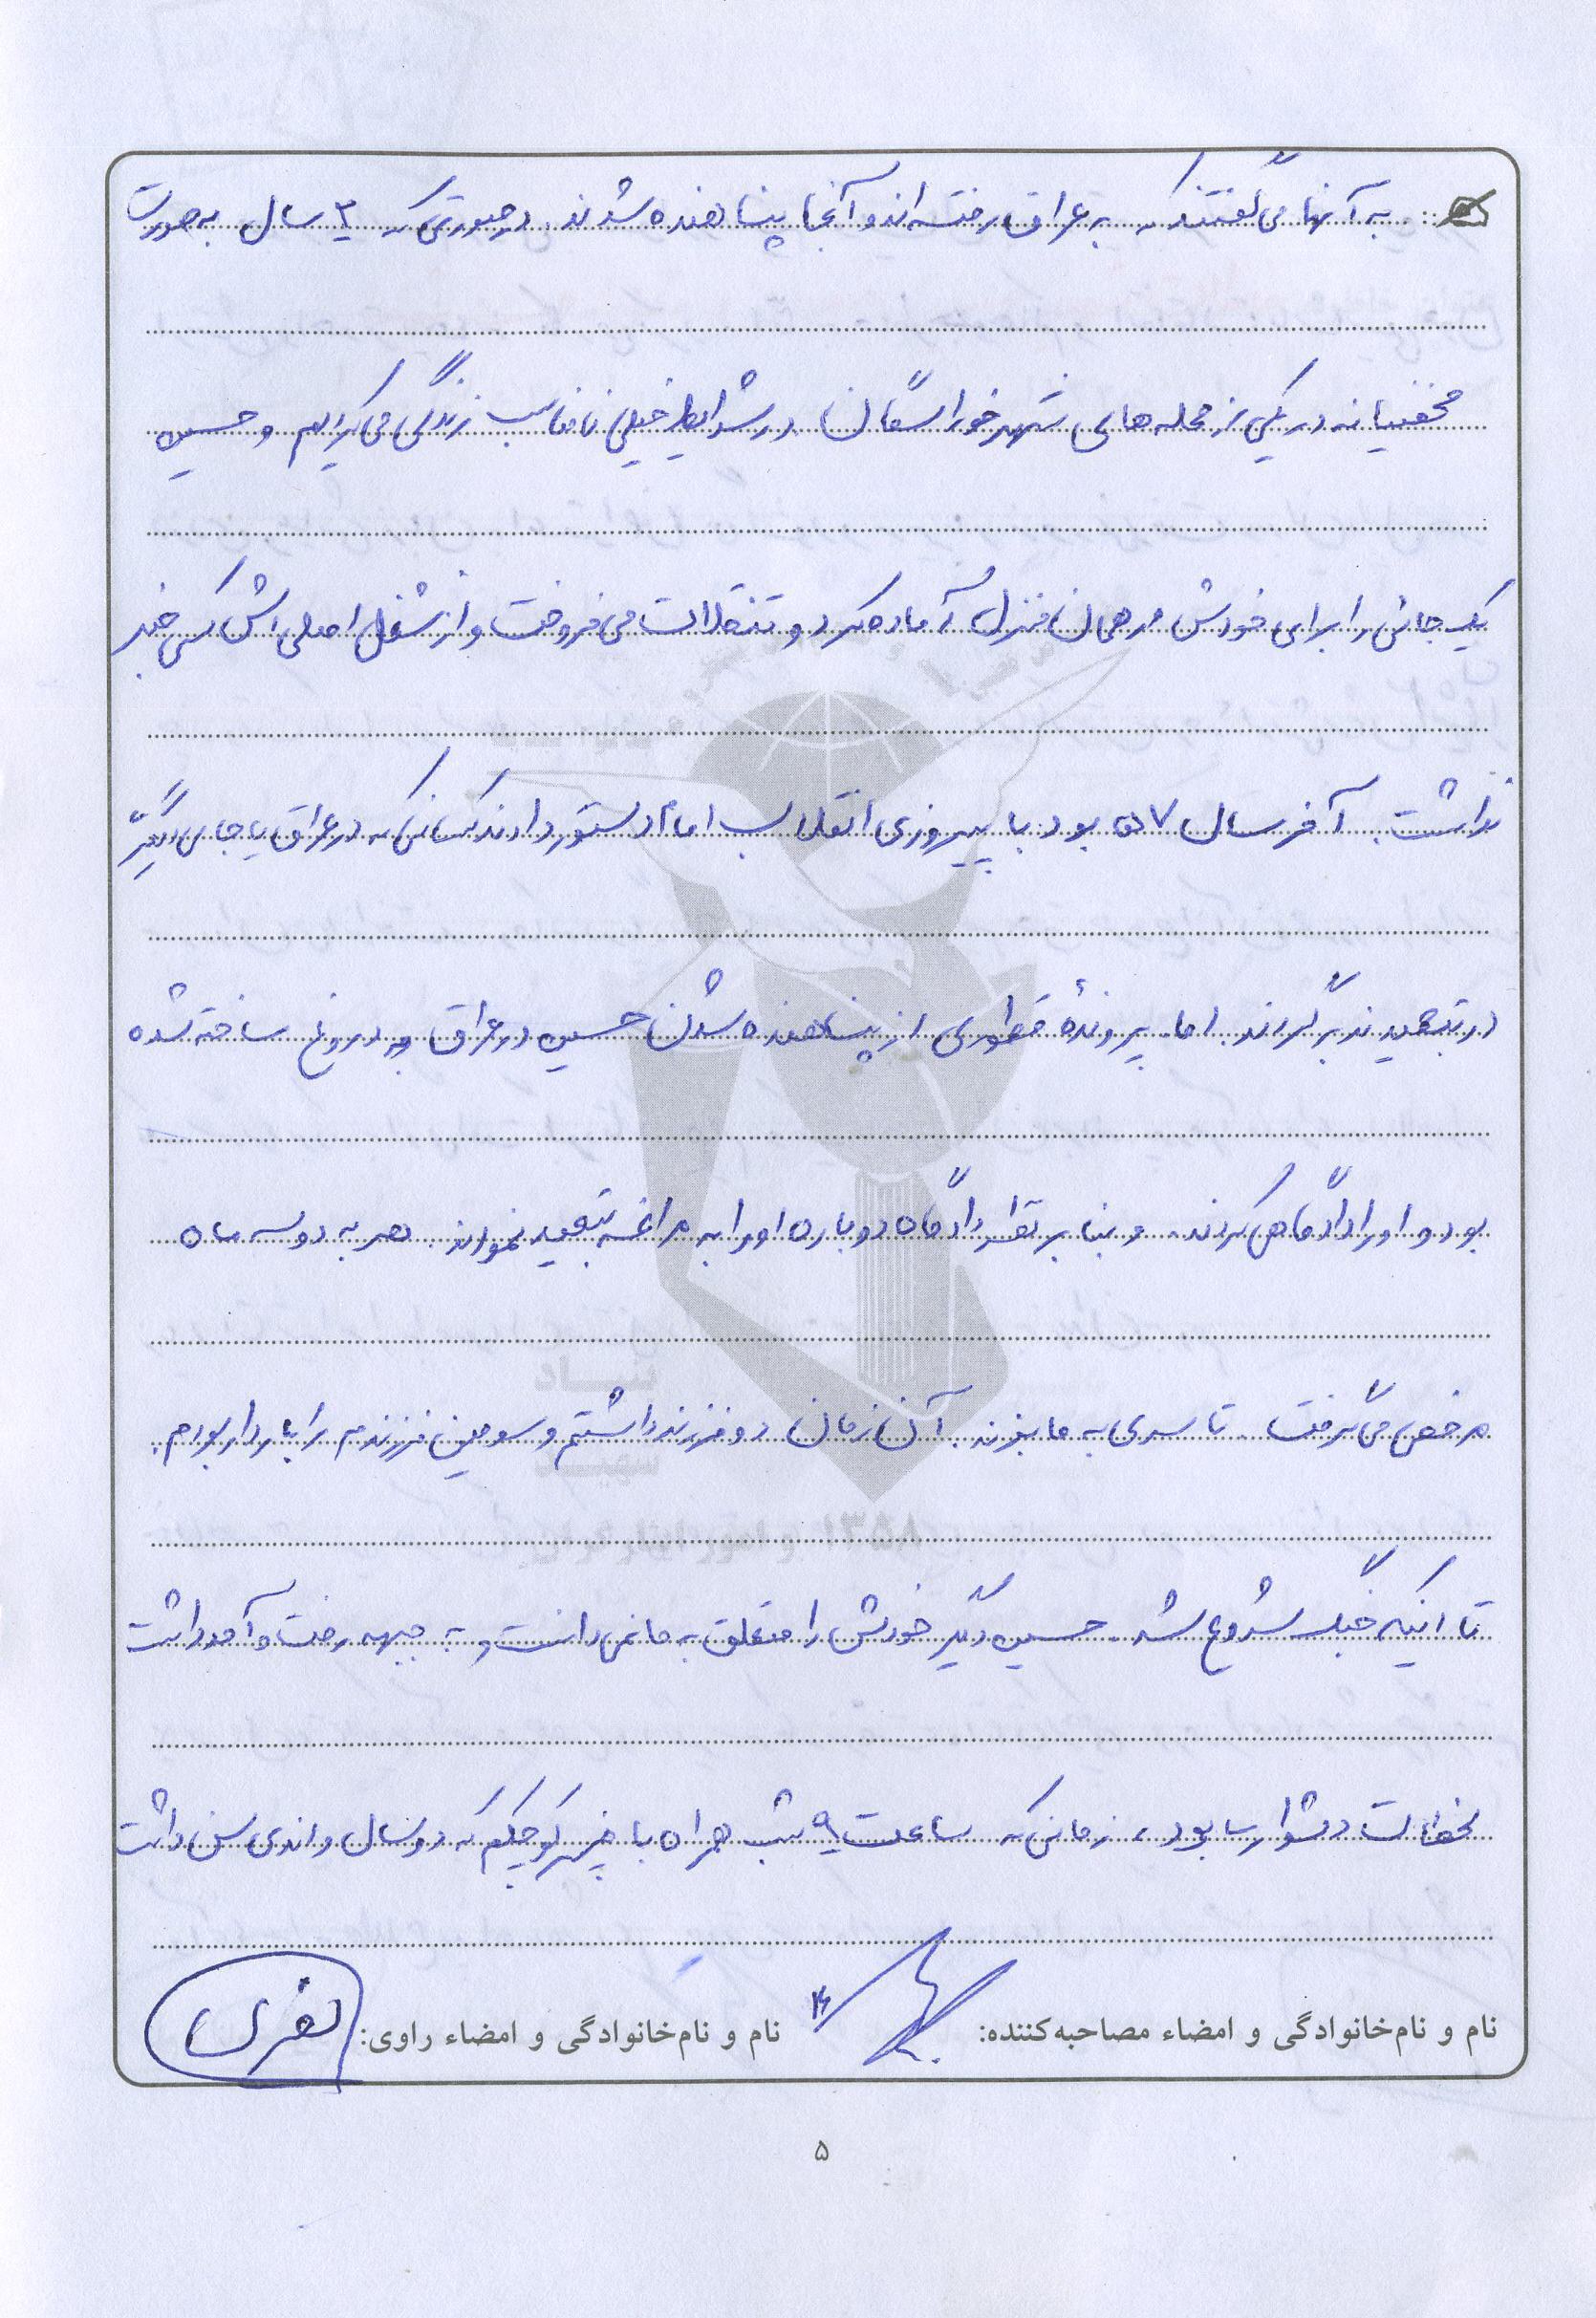 به آنها می گفتند که به عراق رفته اند و آنجا پناهنده شدند. در صورتی که ۲ سال به صورت
مخفیانه در یکی از محله های شهر خوراسگان در شرایط خیلی نامناسب زندگی می کردیم و حسین
یک جائی را برای خودش در همان منزل آماده کرد و تنقلات می فروخت و از شغل اصلی اش کسی خبر
نداشت. آخر سال ۵۷ بود با پیروزی انقلاب امام دستور دادند کسانی که در عراق یا جای دیگر
در تبعیدند برگردند. اما پرونده قطوری از پناهنده شدن حسین در عراق به دروغ ساخته شده
بود و او را دادگاهی کردند. و بنا بر دادگاه دوباره او را به مراغه تبعید نمودند. هر به دو سه ماه
مرخصی می گرفت تا سری به ما بزند. آن زمان دو فرزند داشتم و سومین فرزندم را باردار بودم.
تا اینکه جنگ شروع شد. حسین دیگر خودش را متعلق به ما نمی دانست و به جبهه رفت و آمد داشت
لحظات دشواری بود، زمانی که ساعت ۹ شب همراه با پسر کوچکم که دو سال و اندی سن داشت
نام و نام‌خانوادگی و امضاء مصاحبه‌کننده:
نام و نام‌خانوادگی و امضاء راوی:
بنیاد
شهید
و امور ایثارگران
۱۳۵۸
۵